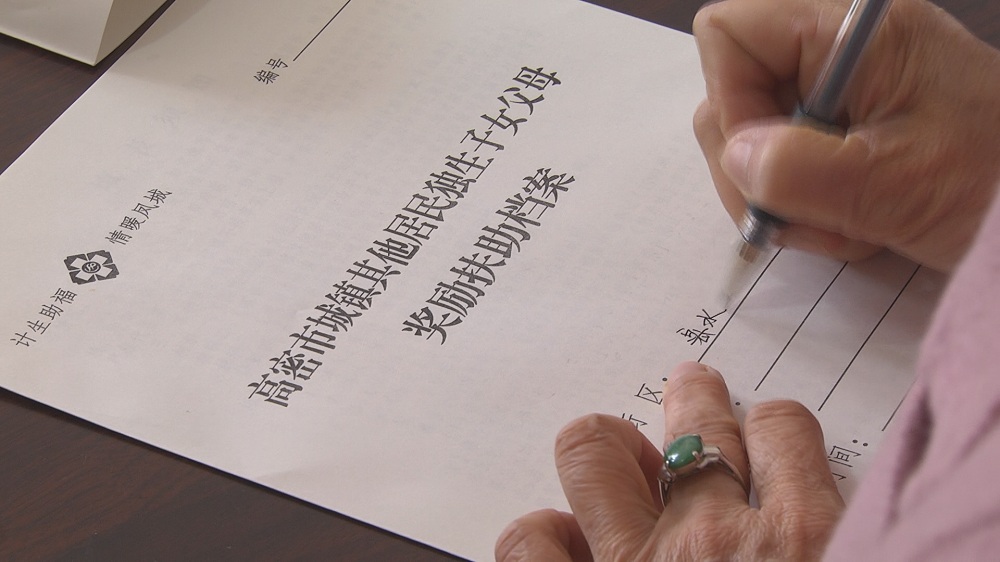 编号
计生助福 情暖凤城
高密市城镇其他居民独生子女父母
奖励扶助档案
区:
间: